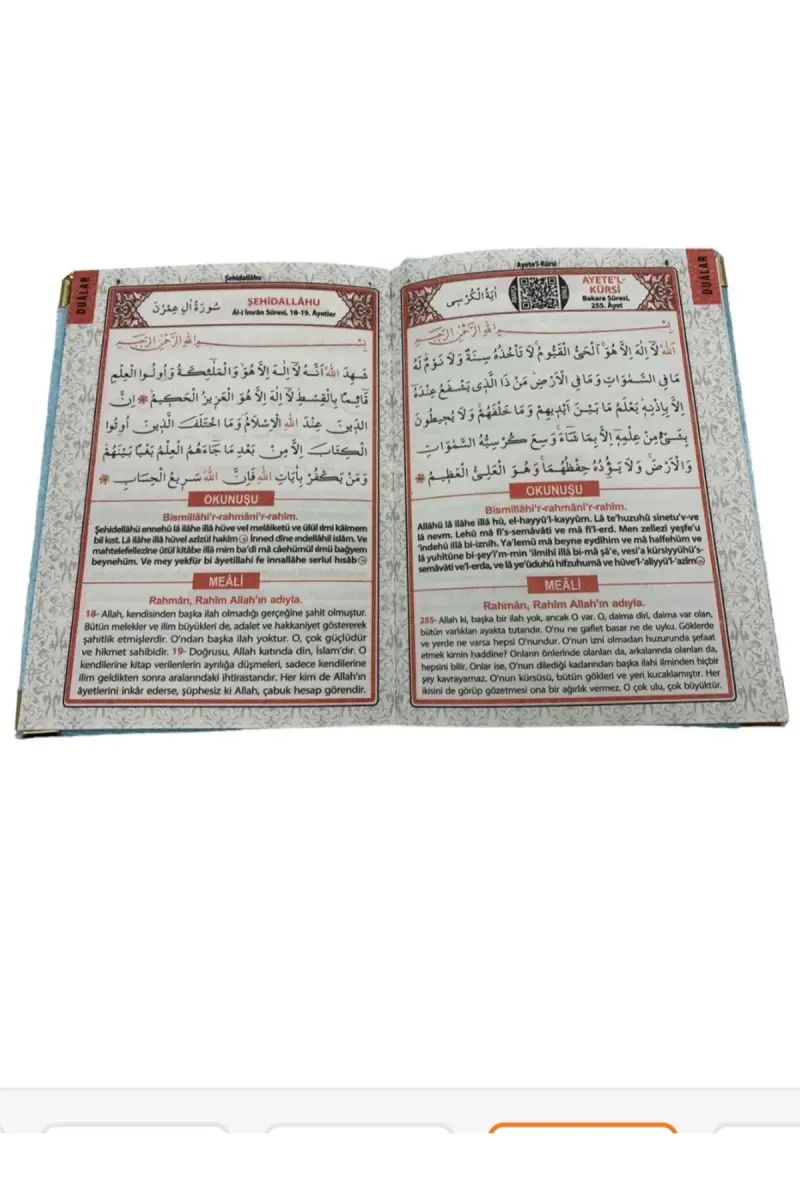 DUÂLAR
Ayete'l-Kürsî
8
اٰيَةُ الْكُرْسِى
AYETE'L-
KÜRSÎ
Bakara Sûresi,
255. Âyet
بِسْمِ اللّٰهِ الرَّحْمٰنِ الرَّحِيمِ
اَللّٰهُ لَٓا اِلٰهَ اِلَّا هُوَۚ اَلْحَىُّ الْقَيُّومُۚ لَا تَأْخُذُهُ سِنَةٌ وَلَا نَوْمٌۜ لَهُ
مَا فِى السَّمٰوَاتِ وَمَا فِى الْاَرْضِۜ مَنْ ذَا الَّذ۪ى يَشْفَعُ عِنْدَهُٓ
اِلَّا بِاِذْنِه۪ۜ يَعْلَمُ مَا بَيْنَ اَيْد۪يهِمْ وَمَا خَلْفَهُمْۚ وَلَا يُح۪يطُونَ
بِشَىْءٍ مِنْ عِلْمِه۪ٓ اِلَّا بِمَا شَٓاءَۚ وَسِعَ كُرْسِيُّهُ السَّمٰوَاتِ
وَالْاَرْضَۚ وَلَا يَؤُ۫دُهُ حِفْظُهُمَاۚ وَهُوَ الْعَلِىُّ الْعَظ۪يمُ
OKUNUŞU
Bismillâhi'r-rahmâni'r-rahîm.
Allâhü lâ ilâhe illâ hû, el-hayyü'l-kayyûm. Lâ te'huzuhû sinetu'v-ve
lâ nevm. Lehû mâ fi's-semâvâti ve mâ fi'l-erd. Men zellezî yeşfe'u
'indehû illâ bi-iznih. Ya'lemü mâ beyne eydîhim ve mâ halfehüm ve
lâ yuhîtûne bi-şey'i'm-min 'ilmihî illâ bi-mâ şâ'e, vesi'a kürsiyyühü's-
semâvâti ve'l-erda, ve lâ ye'ûduhû hifzuhumâ ve hüve'l-'aliyyü'l-'azîm
MEÂLİ
Rahmân, Rahîm Allah'ın adıyla.
255- Allah ki, başka bir ilah yok, ancak O var. O, daima diri, daima var olan,
bütün varlıkları ayakta tutandır. O'nu ne gaflet basar ne de uyku. Göklerde
ve yerde ne varsa hepsi O'nundur. O'nun izni olmadan huzurunda şefaat
etmek kimin haddine? Onların önlerinde olanları da, arkalarında olanları da,
hepsini bilir. Onlar ise, O'nun dilediği kadarından başka ilahi ilminden hiçbir
şey kavrayamaz. O'nun kürsüsü, bütün gökleri ve yeri kucaklamıştır. Her
ikisini de görüp gözetmesi ona bir ağırlık vermez. O çok ulu, çok büyüktür.
DUÂLAR
9
Şehidallâhu
سُورَةُ اٰلِ عِمْرٰنَ
ŞEHİDALLÂHU
Âl-i İmrân Sûresi, 18-19. Âyetler
بِسْمِ اللّٰهِ الرَّحْمٰنِ الرَّحِيمِ
شَهِدَ اللّٰهُ اَنَّهُ لَٓا اِلٰهَ اِلَّا هُوَۙ وَالْمَلٰٓئِكَةُ وَاُو۬لُوا الْعِلْمِ
قَٓائِمًا بِالْقِسْطِۜ لَٓا اِلٰهَ اِلَّا هُوَ الْعَز۪يزُ الْحَك۪يمُ اِنَّ
الدّ۪ينَ عِنْدَ اللّٰهِ الْاِسْلَامُ۠ وَمَا اخْتَلَفَ الَّذ۪ينَ اُو۫تُوا
الْكِتَابَ اِلَّا مِنْ بَعْدِ مَا جَٓاءَهُمُ الْعِلْمُ بَغْيًا بَيْنَهُمْۜ
وَمَنْ يَكْفُرْ بِاٰيَاتِ اللّٰهِ فَاِنَّ اللّٰهَ سَر۪يعُ الْحِسَابِ
OKUNUŞU
Bismillâhi'r-rahmâni'r-rahîm.
Şehidellâhü ennehû lâ ilâhe illâ hüve vel melâiketü ve ülül ılmi kâimem
bil kıst. Lâ ilâhe illâ hüvel azîzül hakîm İnned dîne ındellâhil islâm. Ve
mahtelefellezîne ûtül kitâbe illâ mim ba'di mâ câehümül ılmü bağyem
beynehüm. Ve mey yekfür bi âyetillahi fe innallâhe serîul hısâb
MEÂLİ
Rahmân, Rahîm Allah'ın adıyla.
18- Allah, kendisinden başka ilah olmadığı gerçeğine şahit olmuştur.
Bütün melekler ve ilim büyükleri de, adalet ve hakkaniyet göstererek
şahitlik etmişlerdir. O'ndan başka ilah yoktur. O, çok güçlüdür
ve hikmet sahibidir. 19- Doğrusu, Allah katında din, İslam'dır. O
kendilerine kitap verilenlerin ayrılığa düşmeleri, sadece kendilerine
ilim geldikten sonra aralarındaki ihtirastandır. Her kim de Allah'ın
âyetlerini inkâr ederse, şüphesiz ki Allah, çabuk hesap görendir.